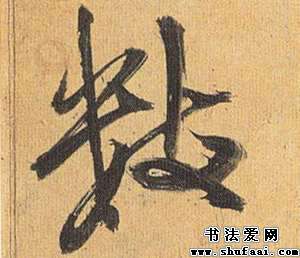 数
书法爱网
www.shufaai.com